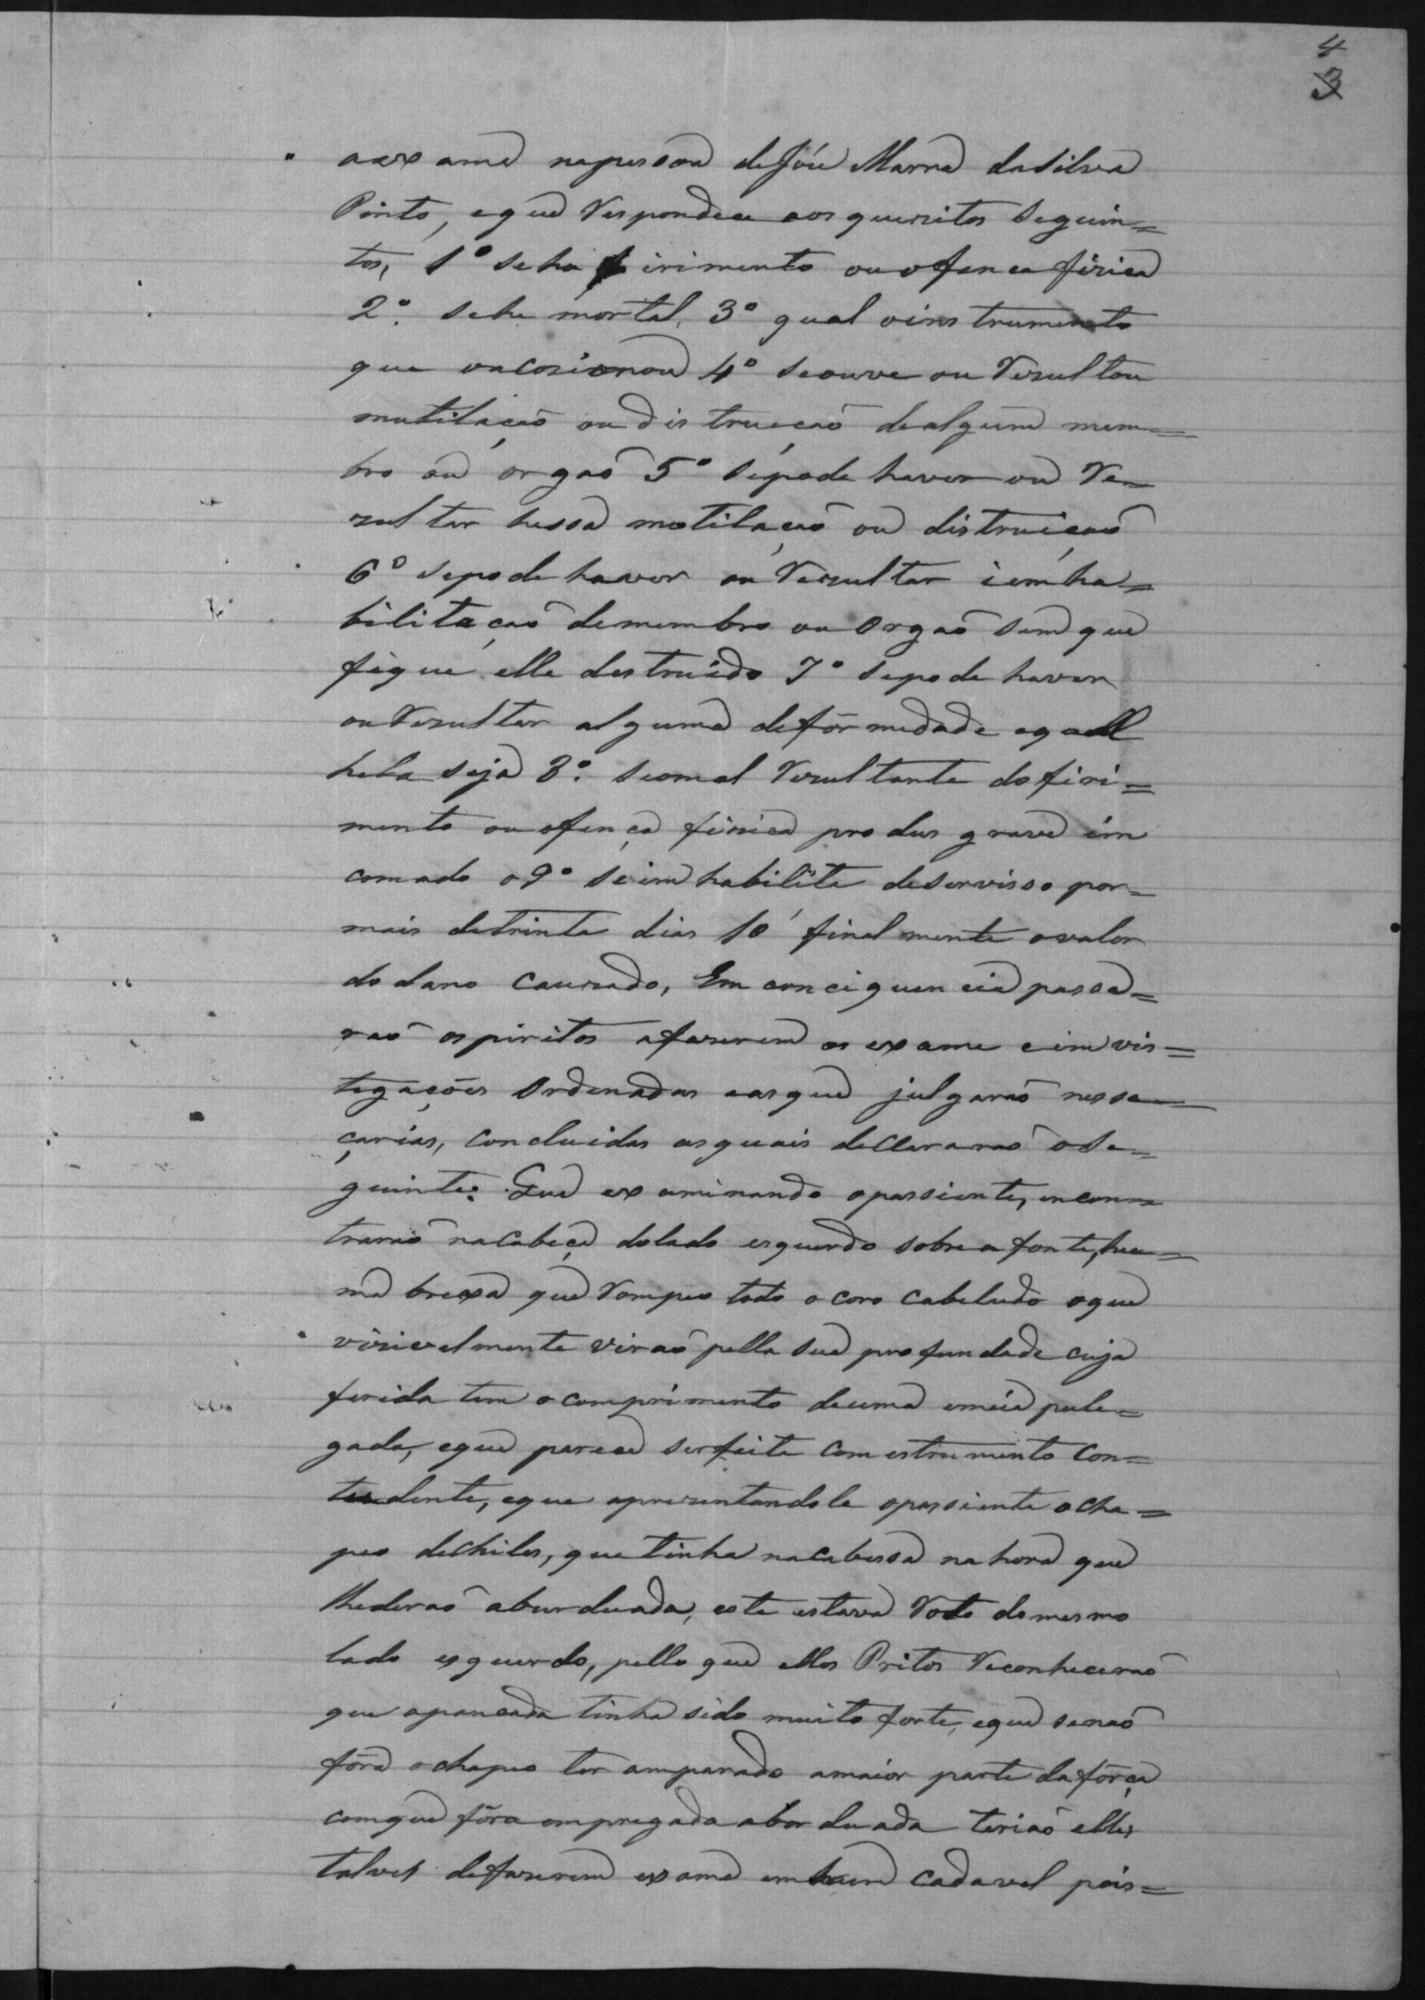 4
3
aexame napessoa deJose Maria dasilva
Pinto, eque Respondece aos quezitos Seguin=
tes, 1º seha firimento ou ofença fizica
2º. sehe mortal, 3º qual oinstrumento
que oucazionou 4º seouve ou Rezultou
mutilaçaõ ou distruiçaõ dealgum mem=
bro ou orgaõ 5º sepode haver ou Re=
zultar hessa motilaçaõ ou distruiçaõ
6º sepode haver ou Rezultar iemha=
bilitaçaõ demembro ou orgaõ sem que
fique elle destruido 7º sepode haver
ou Rezultar alguma defórmedade equall
hella seja 8º. seomal Rezultante do firi=
mento ou ofença fizica produs grave im
comado o9º seimhabilite deservisso por=
mais detrinta dias 10 finalmente ovalor
do dano cauzado, Em conciquencia passa=
raõ ospiritos afazerem os exame eimvis=
tegações Ordenadas easque julgaraõ nessa=
çarias, concluidas asquais decllararaõ ose=
guinte: Que examinando opassiente, encon=
traraõ nacabeça dolado esquerdo sobre a fonte, hu=
ma brexa que Rompeo todo o coro cabeludo oque
vizivelmente viraõ pella sua profundade cuja
ferida tem o comprimento deuma emeia pule=
gada, eque parece serfeita com estrumento con=
tudente, eque aprezentandole opassiente ocha=
peo dechiles, que tinha nacabessa na hora que
lhederaõ aburduada, este estava Roto domesmo
lado esquerdo, pello que elles Pritos Reconheceraõ
que apancada tinha sido muito forte, eque senaõ
fôra ochapeo ter amparado amaior parte dafórça
comque fôra empregada abordoada teriaõ elles
talves defazerem exame em hum cadavel pois=